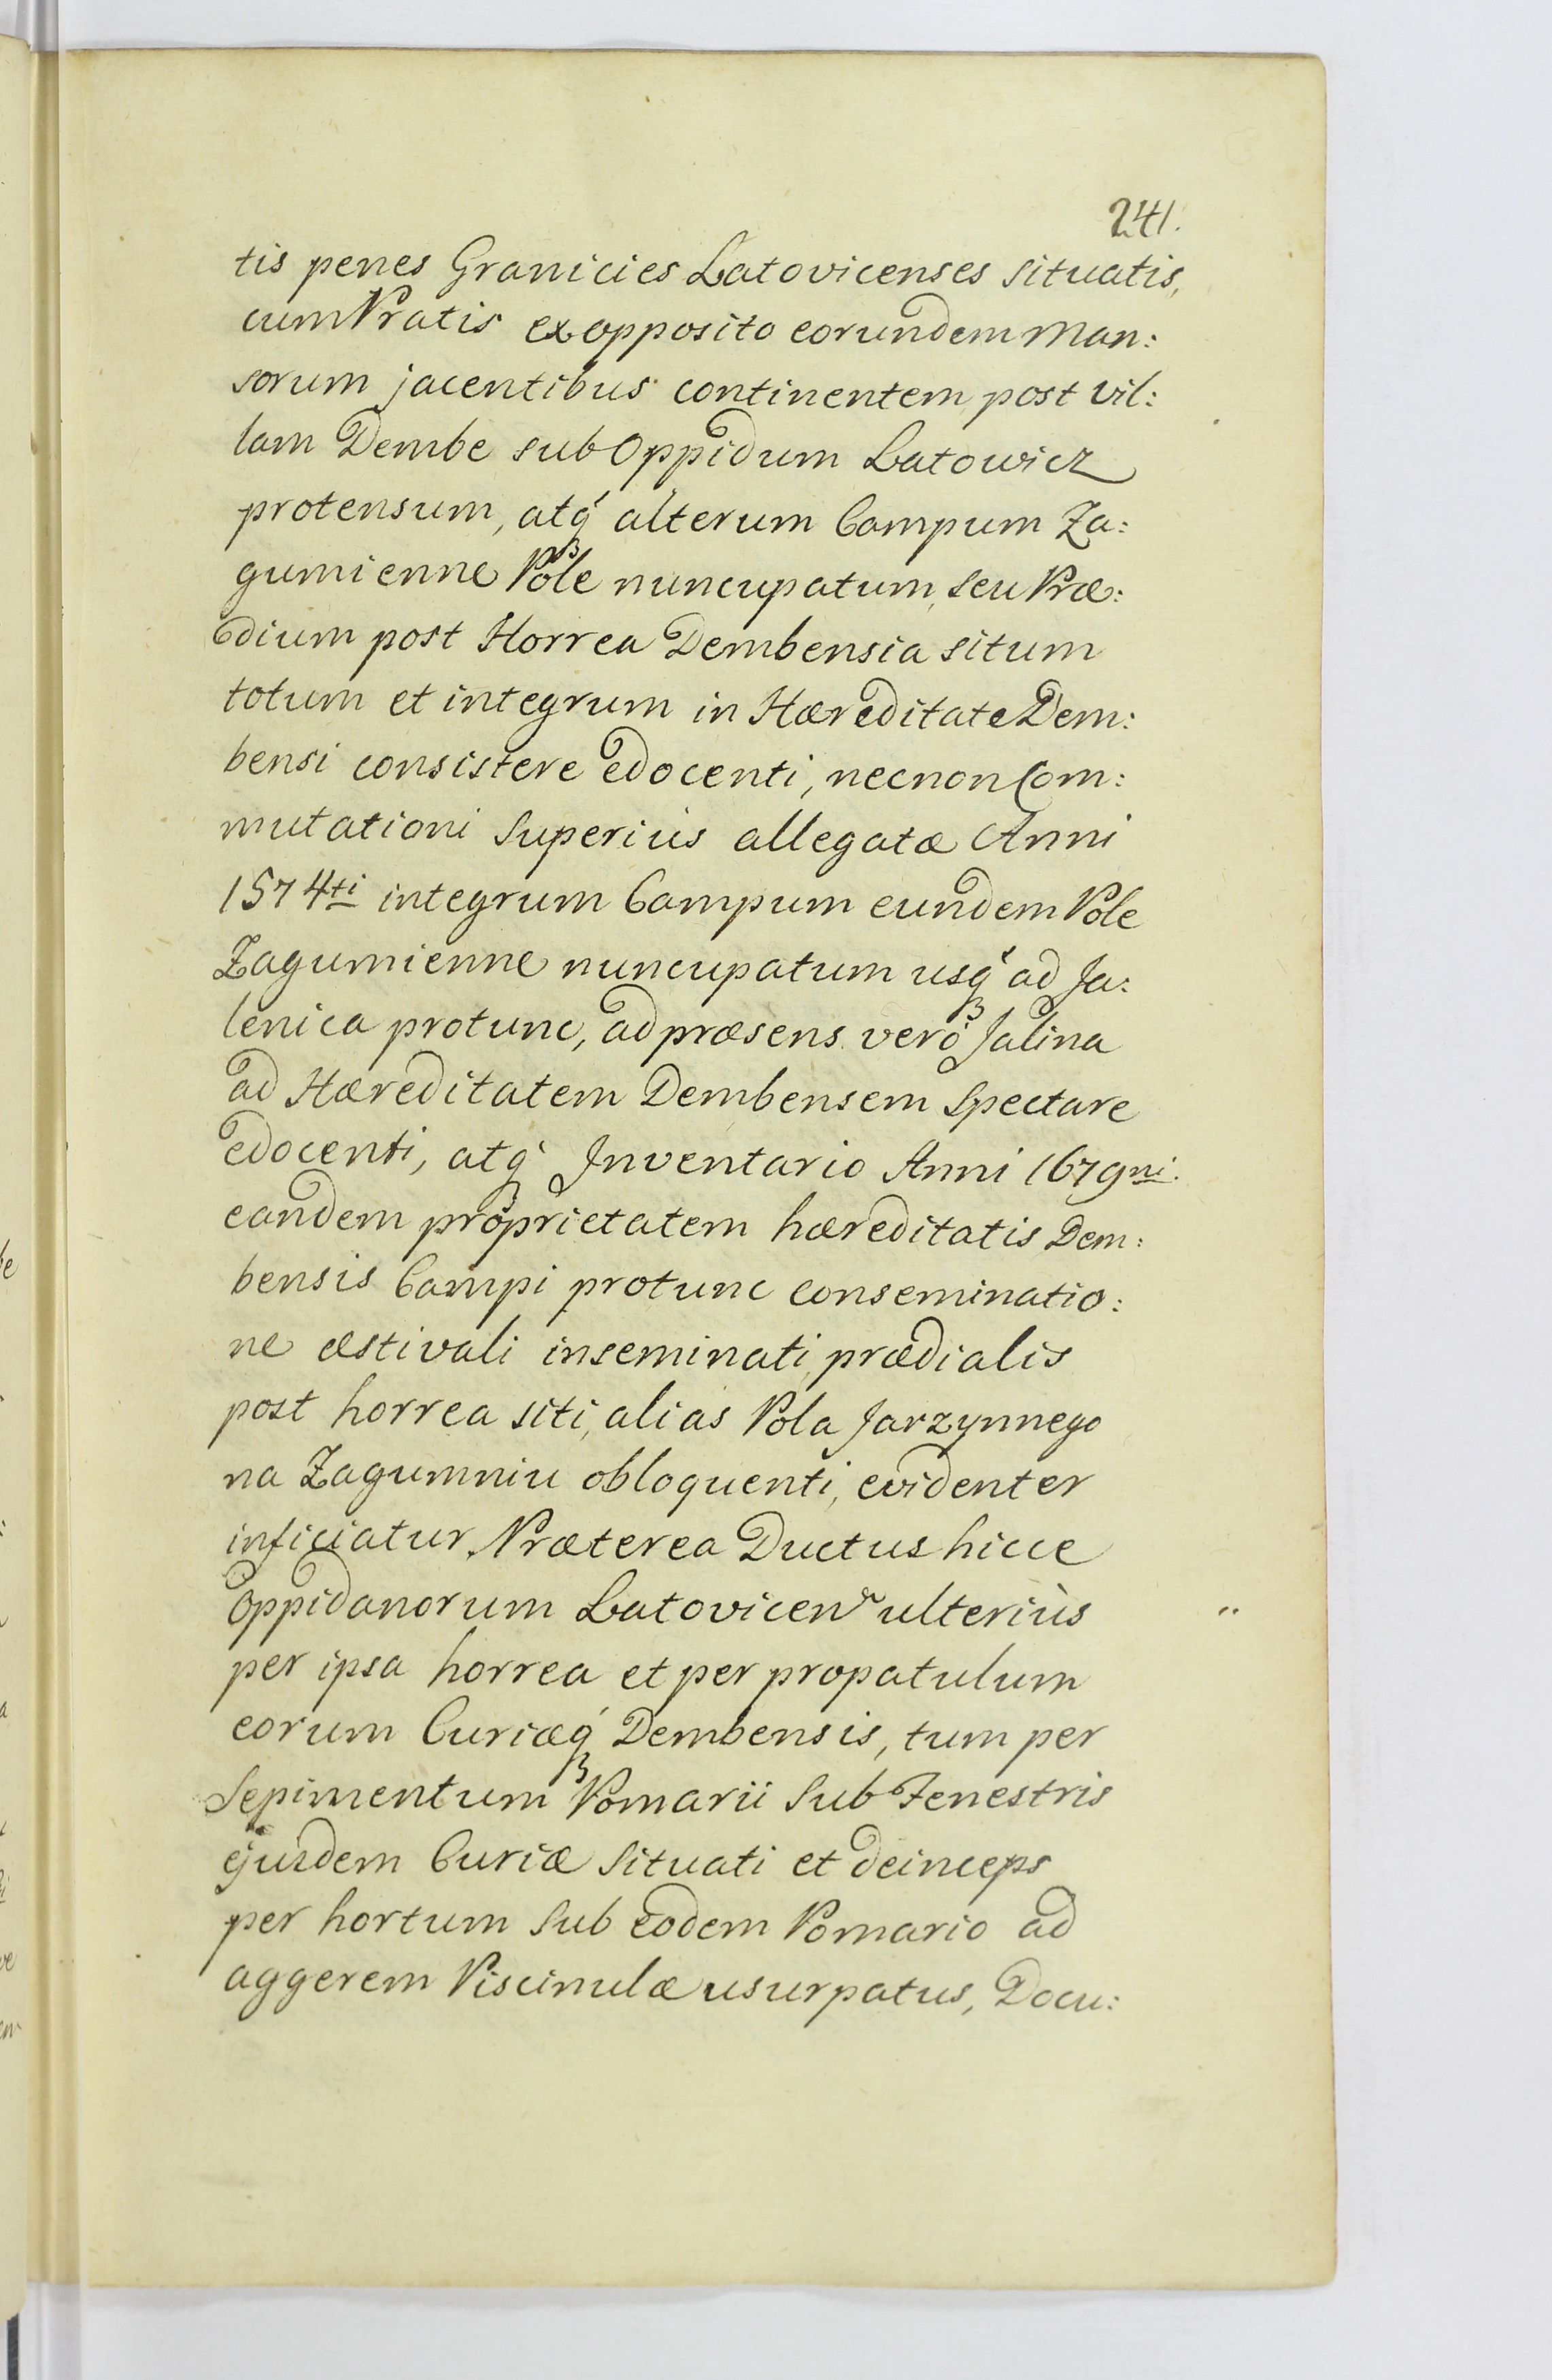 241.
tis penes Granicies Latovicenses situatis,
cum Pratis ex opposito eorundem Man:
sorum jacentibus continentem post Vil:
lam Dembe sub Oppidum Latowicz
protensum, atq́₃ alterum Campum Za:
gumienne Pole nuncupatum, seu Præ:
dium post Horrea Dembensia situm
totum et integrum in Hæreditate Dem:
bensi consistere edocenti, necnon Com:
mutationi superiùs allegatæ Anni
1574ti integrum Campum eundem Pole
Zagumienne nuncupatum usq́₃ ad Ja:
lenica protunc, ad præsens verò Jalina
ad Hæreditatem Dembensem spectare
edocenti, atq́₃ Inventario Anni 1679ni.
eandem proprietatem hæreditatis Dem:
bensis Campi protunc conseminatio:
ne æstivali inseminati, prædialis
post horrea siti, alias Pola Jarzynnego
na Zagumniu obloquenti, evidenter
inficiatur. Præterea Ductus hicce
Oppidanorum Latovicen ulteriùs
per ipsa horrea et per propatulum
eorum Curiæq́₃ Dembensis, tum per
Sepimentum Pomarii sub Fenestris
ejusdem Curiæ situati et deinceps
per hortum sub eodem Pomario ad
aggerem Piscinulæ usurpatus, Docu: